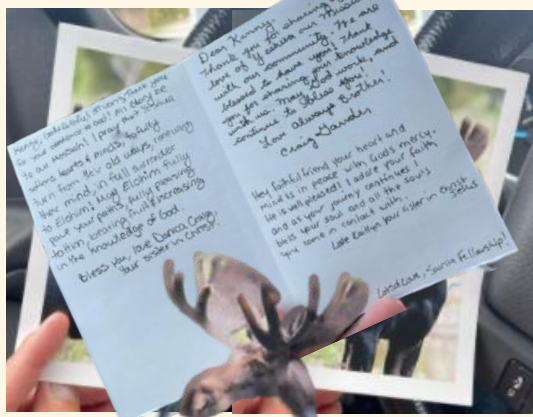 Kenny, God's faithful & strong. Thank you
for your obedience to God! All glory be
to our Messiah! I pray that Yeshua
softens hearts & minds, to fully
turn from their old ways, renewing
their mind, in full surrender
to Elohim! May Elohim fully
pave your paths, fully pressing
to Him, bearing fruit & increasing
in the knowledge of God.
Bless you, love Danica Craig,
Your sister in Christ.
Dear Kenny,
Thank you for sharing
love of Yeshua our
with our community. We are
blessed to have you! Thank
you for sharing your knowledge
with us. May God work, and
continue to bless you!
Love always Brother!
Craig
Hey faithful friend your heart and
mind is in peace with God's mercy.
He is well pleased! I adore your faith
and as your journey continues I
bless your soul and all the souls
you come in contact with.
Love Kaitlyn your sister in Christ
Jesus
Fellowship!